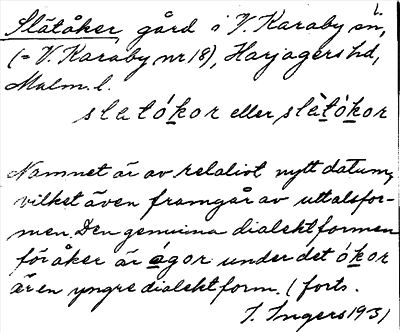 Slätåker, gård i V. Karaby sn,
(= V. Karaby nr 18), Harjagers hd,
Malm. l.
slatókor eller slàtókor
Namnet är av relativt nytt datum,
vilket även framgår av uttalsfor-
men. Den genuina dialektformen
för åker är ágor under det ókor
är en yngre dialektform. (forts.
I. Ingers 1931